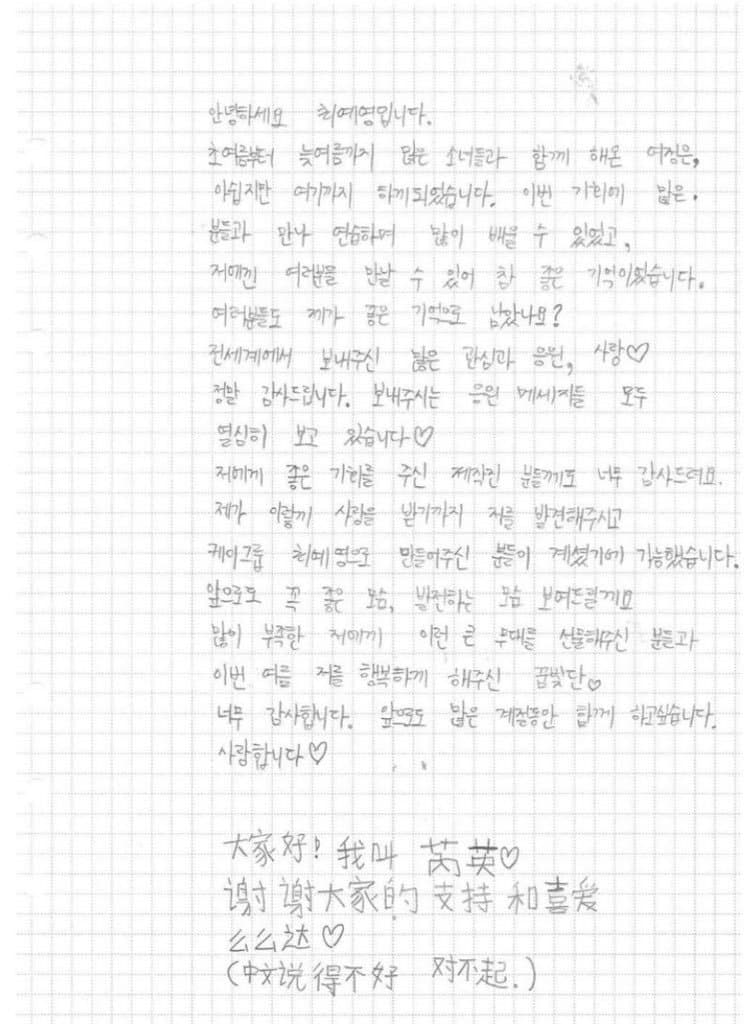 안녕하세요 최예영입니다.
초여름부터 늦여름까지 많은 소녀들과 함께 해온 여정은,
아쉽지만 여기까지 하게되었습니다. 이번 기회에 많은.
분들과 만나 연습하며 많이 배울 수 있었고,
저에겐 여러분을 만날 수 있어 참 좋은 기억이었습니다.
여러분들도 제가 좋은 기억으로 남았나요?
전세계에서 보내주신 많은 관심과 응원, 사랑♡
정말 감사드립니다. 보내주시는 응원 메세지들 모두
열심히 보고 있습니다♡
저에게 좋은 기회를 주신 제작진 분들께도 너무 감사드려요.
제가 이렇게 사랑을 받기까지 저를 발견해주시고
케이그룹 최예영으로 만들어주신 분들이 계셨기에 가능했습니다.
앞으로도 꼭 좋은 모습, 발전하는 모습 보여드릴게요
많이 부족한 저에게 이런 큰 무대를 선물해주신 분들과
이번 여름 저를 행복하게 해주신 꿈빛단♡
너무 감사합니다. 앞으로도 많은 계절동안 함께 하고싶습니다.
사랑합니다♡
大家好! 我叫 芮英♡
谢谢大家的 支持 和喜爱
么么达♡
(中文说得不好 对不起.)